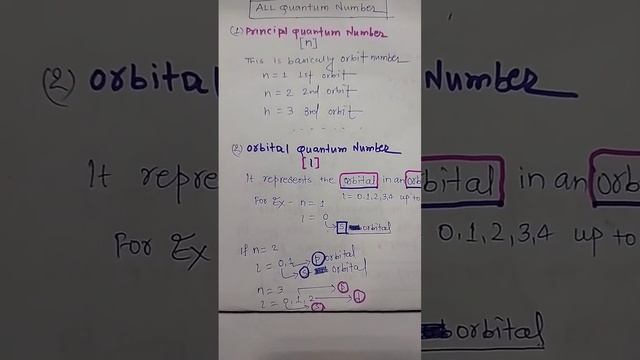 ALL Quantum Number
(1) Principl quantum Number
[n]
This is basically orbit number
n = 1 1st orbit
n = 2 2nd orbit
n = 3 3rd orbit
(2) orbital quantum Number
[l]
It represents the orbital in an orb
For Ex - n = 1 l = 0,1,2,3,4 up to
l = 0
s orbital
If n = 2
l = 0,1 p orbital
s orbital
n = 3 p
l = 0,1,2 d
s
(2) orbital
Number
It repre
bital in an orb
For Ex
0,1,2,3,4 up to
orbital